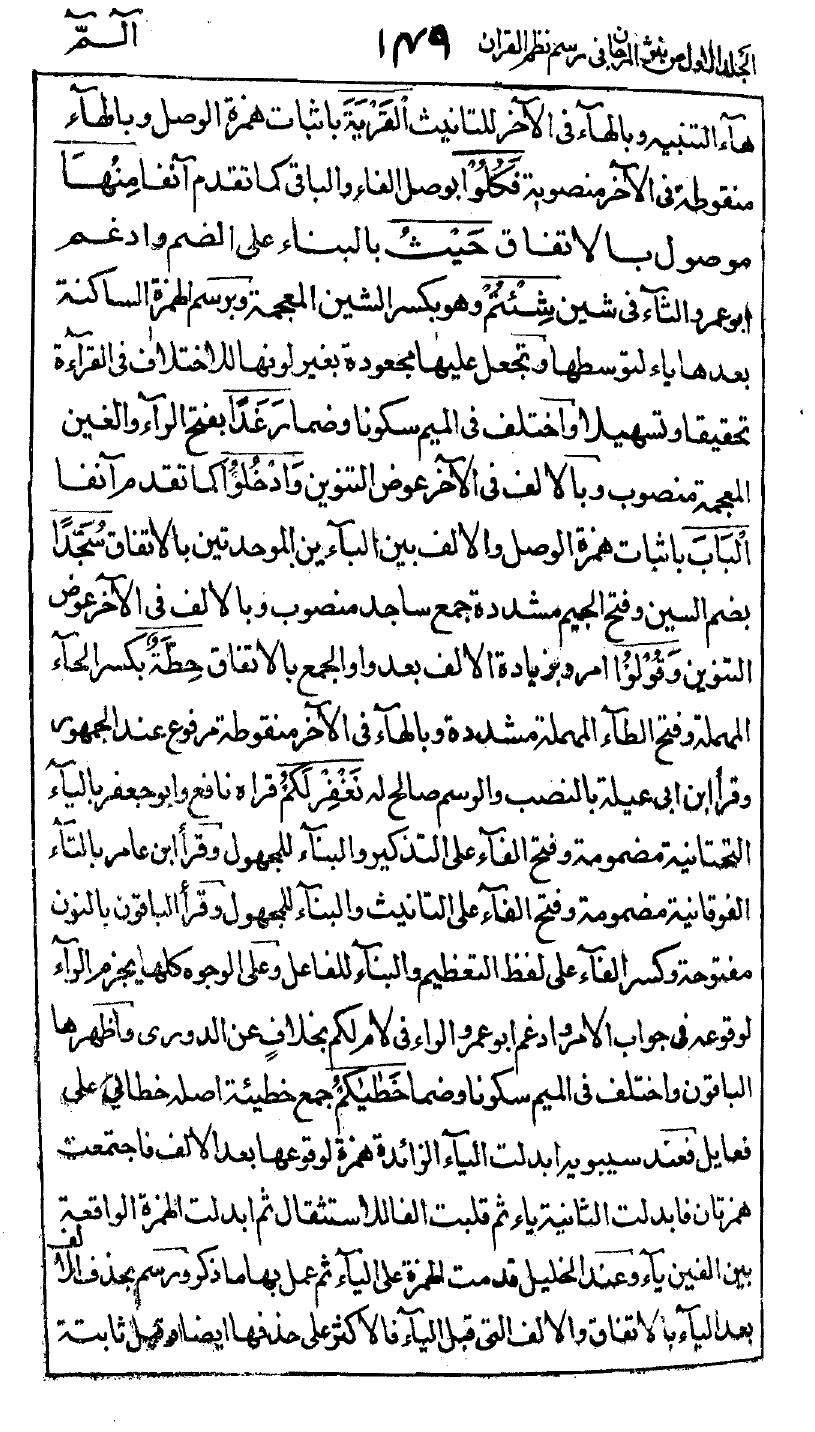 الجلد الاول من نثر المرجان فى رسم نظم القران
١٤٩
الٓـمّٓ
هآء التنبيه وبالهآء فى الآخر للتانيث اَلْقَرْيَةَ باثبات همزة الوصل وبالهآء
منقوطة فى الآخر منصوبة فَكُلُوْا بوصل الفاء والباقى كما تقدم آنفا مِنْهَا
موصول بالاتفاق حَيْثُ بالبناء على الضم وادغم
ابو عمرو الثآء فى شين شِئْتُمْ وهو بكسر الشين المعجمة وبرسم الهمزة الساكنة
بعدها ياء لتوسطها وتجعل عليها مجعودة بغير لونها للاختلاف فى القرآءة
تحقيقا وتسهيلا واختلف فى الميم سكونا وضما رَغَدًا بفتح الرآء والغين
المعجمة منصوب وبالالف فى الآخر عوض التنوين وَادْخُلُوْا كما تقدم آنفا
الْبَابَ باثبات همزة الوصل والالف بين البآءين الموحدتين بالاتفاق سُجَّدًا
بضم السين وفتح الجيم مشددة جمع ساجد منصوب وبالالف فى الآخر عوض
التنوين وَقُوْلُوْا امر وبزيادة الالف بعد واو الجمع بالاتفاق حِطَّةٌ بكسر الحآء
المهملة وفتح الطآء المهملة مشددة وبالهآء فى الآخر منقوطة مرفوع عند الجمهور
وقرأ ابن ابى عبلة بالنصب والرسم صالح له نَغْفِرْ لَكُمْ قراه نافع وابو جعفر باليآء
التحتانية مضمومة وفتح الفآء على التذكير والبنآء للمجهول وقرأ ابن عامر بالتآء
الفوقانية مضمومة وفتح الفآء على التانيث والبنآء للمجهول وقرأ الباقون بالنون
مفتوحة وكسر الفآء على لفظ التعظيم والبنآء للفاعل وعلى الوجوه كلها بجزم الرآء
لوقوعه فى جواب الامر وادغم ابو عمرو الراء فى لام لكم بخلافٍ عن الدورى واظهرها
الباقون واختلف فى الميم سكونا وضما خَطٰيٰكُمْ جمع خطيئة اصله خطائى على
فعايل فعند سيبويه ابدلت اليآء الزائدة همزة لوقوعها بعد الالف فاجتمعت
همزتان فابدلت الثانية ياء ثم قلبت الفا للاستثقال ثم ابدلت الهمزة الواقعة
بين الفين يآء وعند الخليل قدمت الهمزة على اليآء ثم عمل بها ما ذكر ورسم بحذف الالف
بعد اليآء بالاتفاق والالف التى قبل اليآء فالاكثر على حذفها ايضا وقيل ثابتة